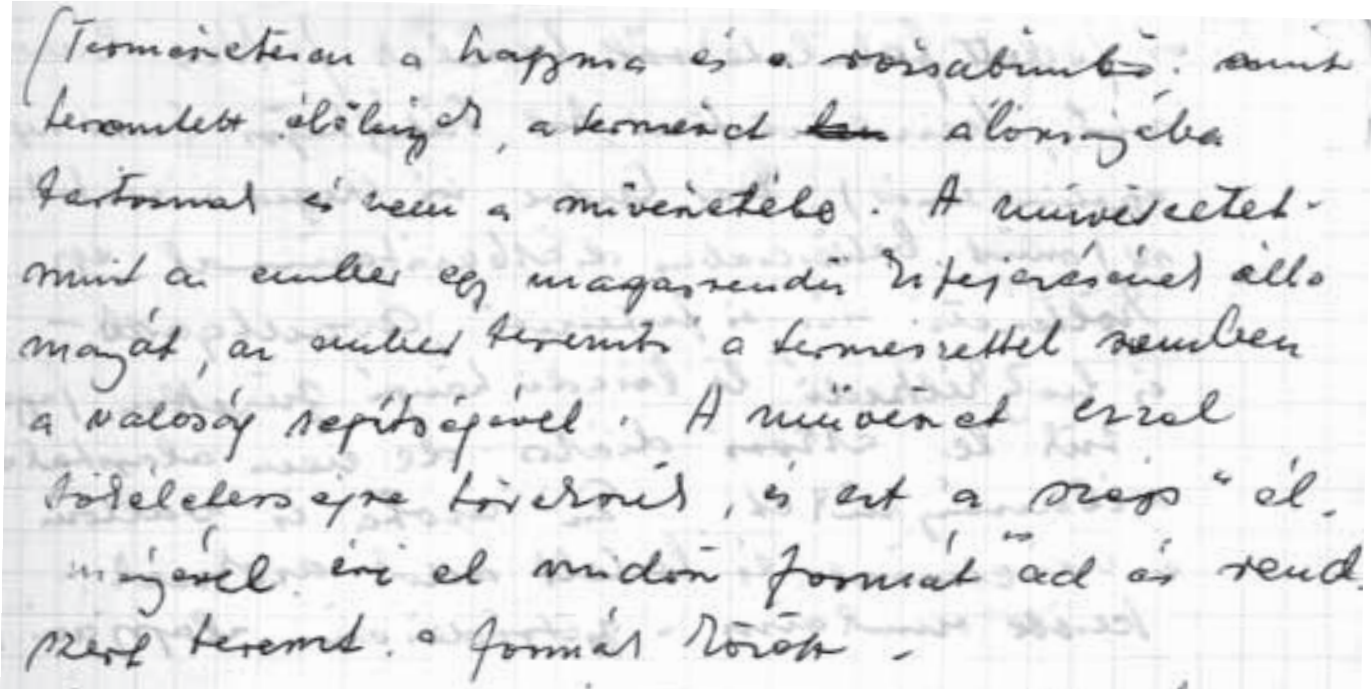 (Természetesen a hagyma és a rózsabimbó. mint
teremtett élőlények, a természet álomvilágába
tartoznak és nem a művészetébe. A művészetet-
mint az ember egy magasrendű kifejezésének állo
mását, az ember teremti a természettel szemben
a valóság segítségével. A művészet ezzel
tökéletességre törekszik, és ezt a szép" él.
ményével éri el midőn formát ad és rend.
szert teremt. a formák között -